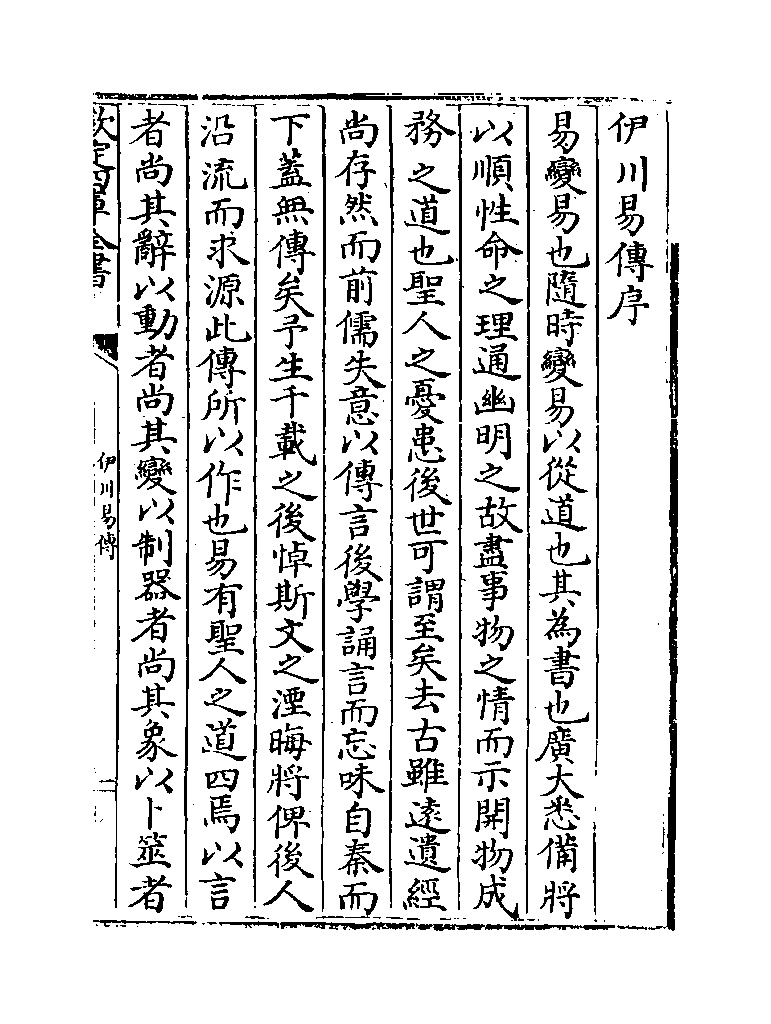 伊川易傳序
易變易也隨時變易以從道也其為書也廣大悉備將
以順性命之理通幽明之故盡事物之情而示開物成
務之道也聖人之憂患後世可謂至矣去古雖遠遺經
尚存然而前儒失意以傳言後學誦言而忘味自秦而
下蓋無傳矣予生千載之後悼斯文之湮晦將俾後人
沿流而求源此傳所以作也易有聖人之道四焉以言
者尚其辭以動者尚其變以制器者尚其象以卜筮者
欽定四庫全書
伊川易傳